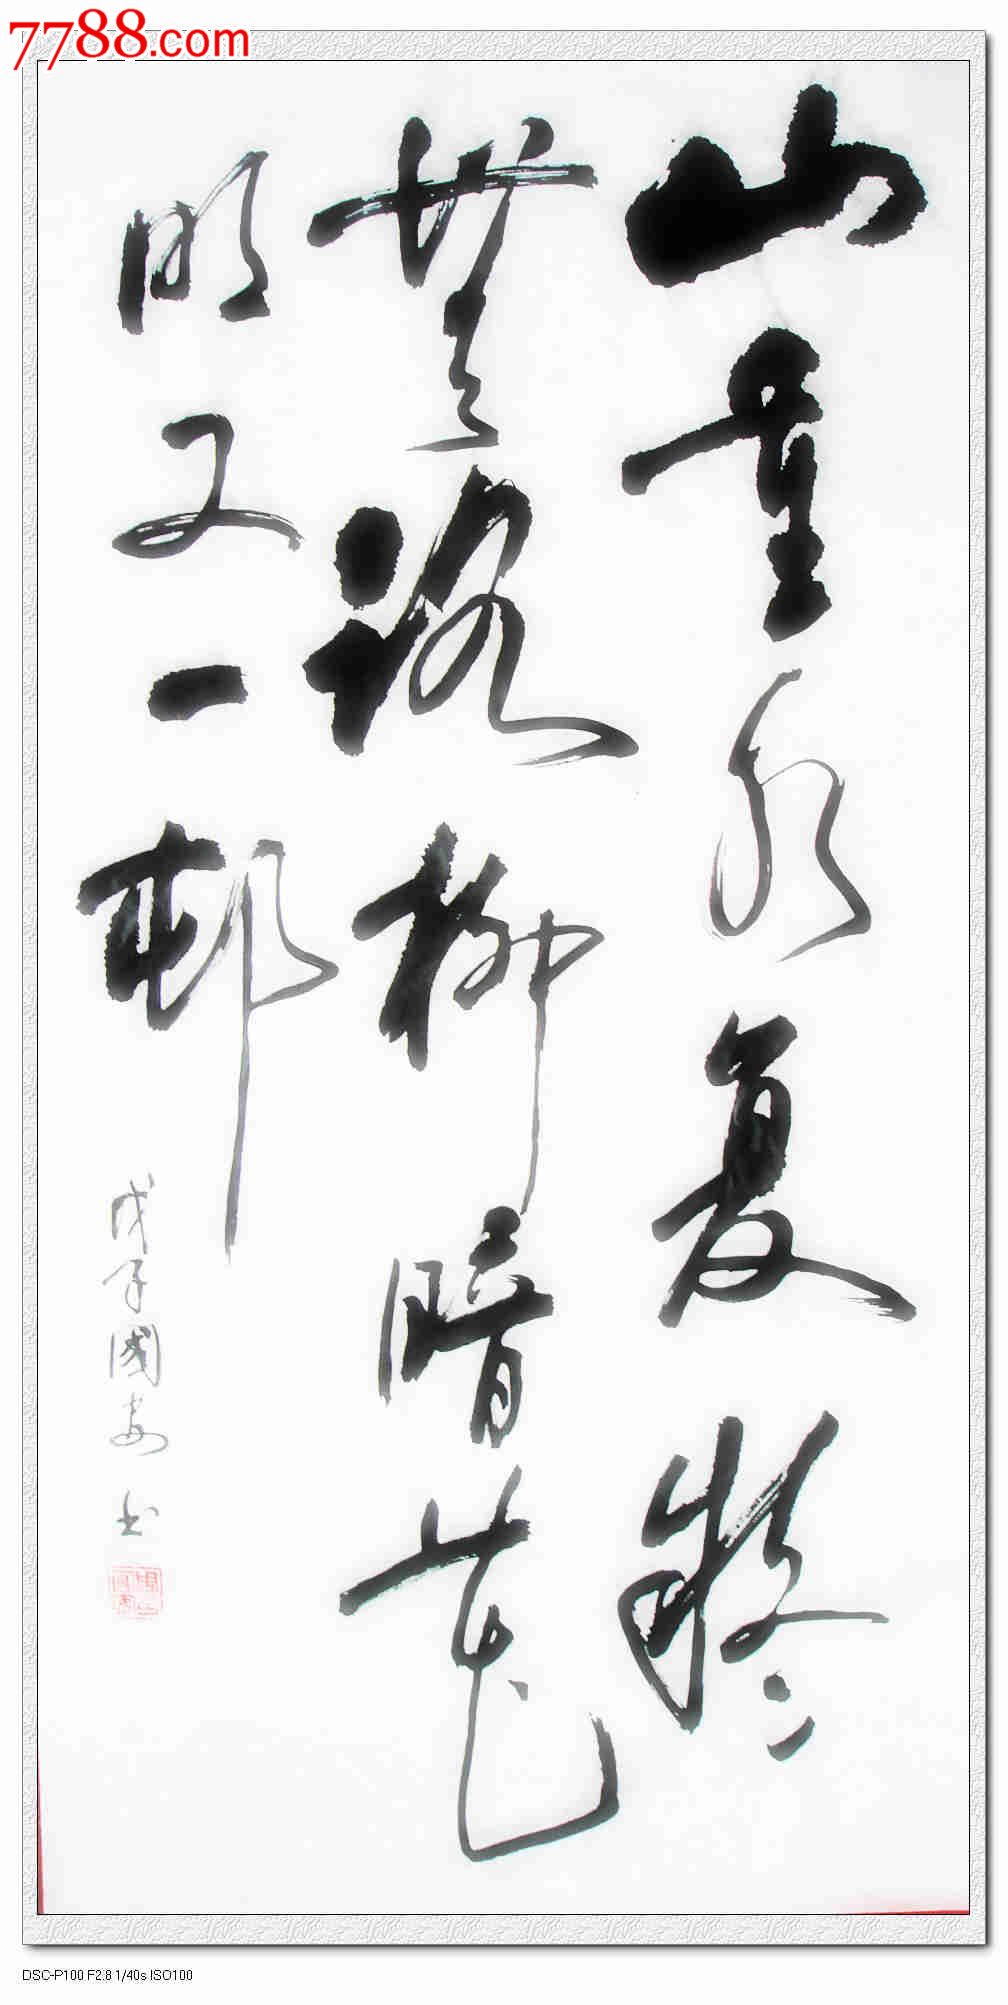 7788.com
山重水复疑
無路柳暗花
明又一邨
戊子國安书
DSC-P100 F2.8 1/40s ISO100